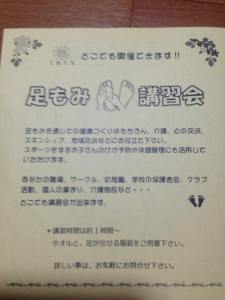 どこでも開催できます!!
足もみ 講習会
足もみを通しての健康づくりはもちろん、介護、心の交流、
スキンシップ、地域交流などにお役立て下さい。
スポーツをするお子さんのけが予防や体調管理にも活用して
いただけます。
あなたの職場、サークル、幼稚園、学校の保護者会、クラブ
活動、個人の集まり、介護施設など・・・
どこでも講習会が出来ます。
*講習時間は約1時間~
タオルと、足が出せる服装をご用意下さい。
詳しい事は、お気軽にお問合せ下さい。